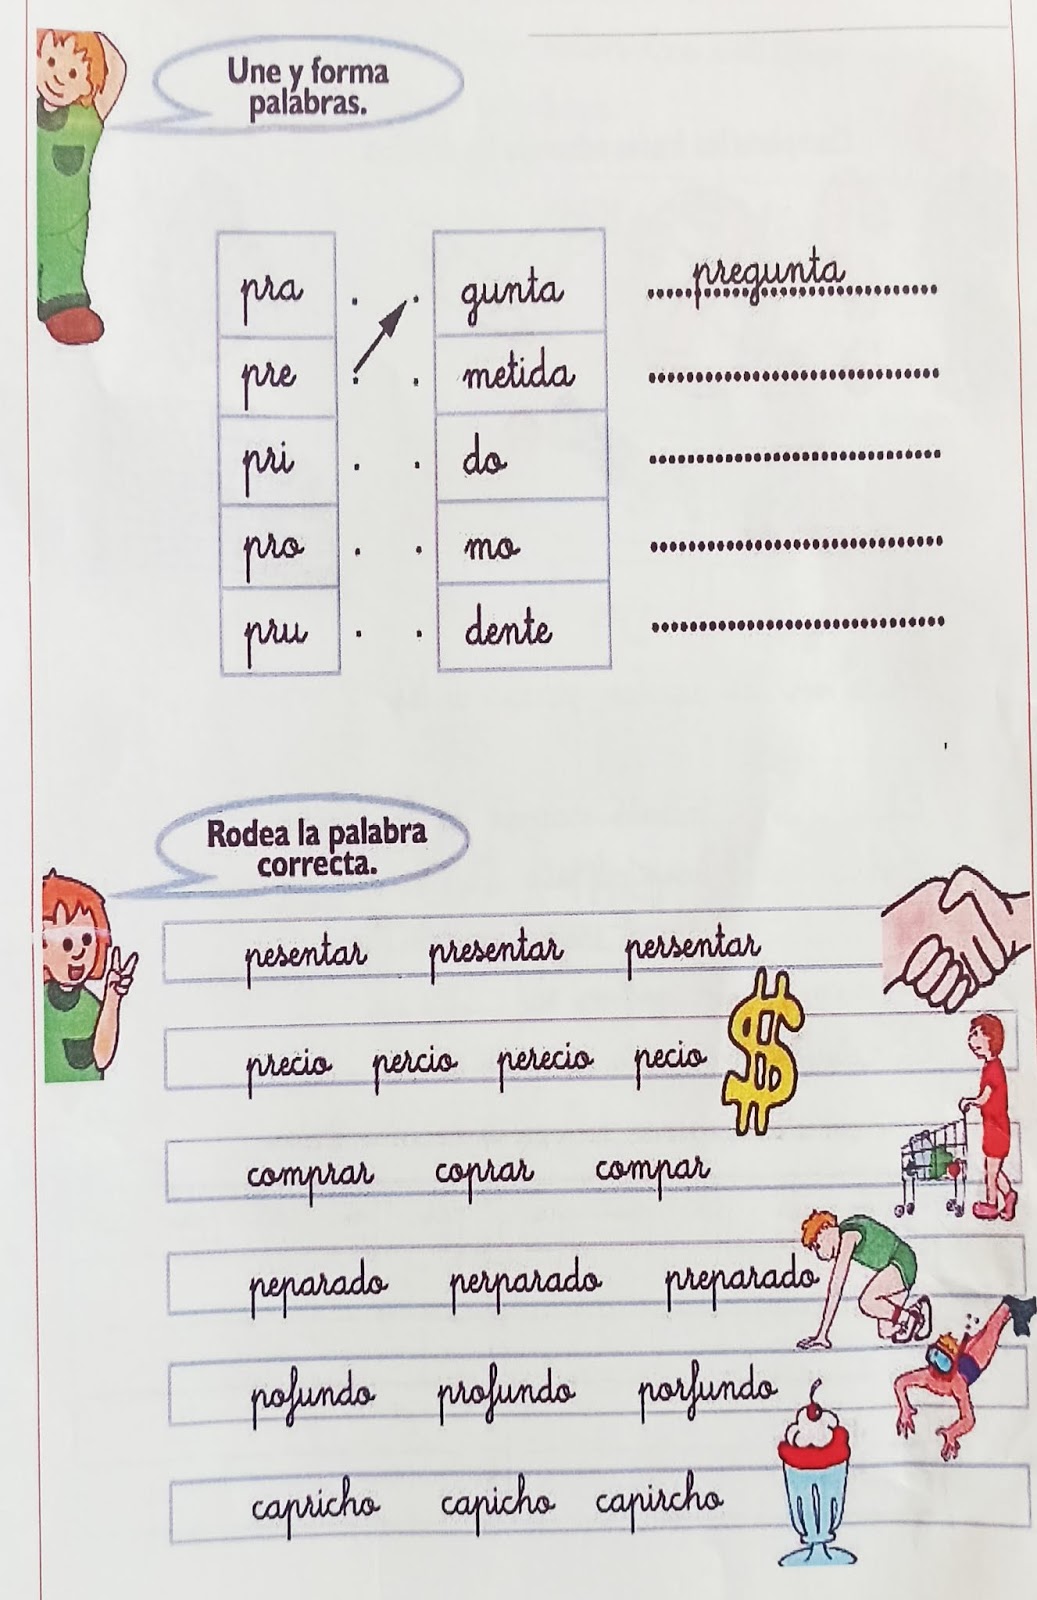 Une y forma
palabras.
pra . . gunta pregunta
pre . . metida
pri . . do
pro . . mo
pru . . dente
Rodea la palabra
correcta.
pesentar presentar persentar
precio percio perecio pecio $
comprar coprar compar
peparado perparado preparado
pofundo profundo porfundo
capricho capicho capircho